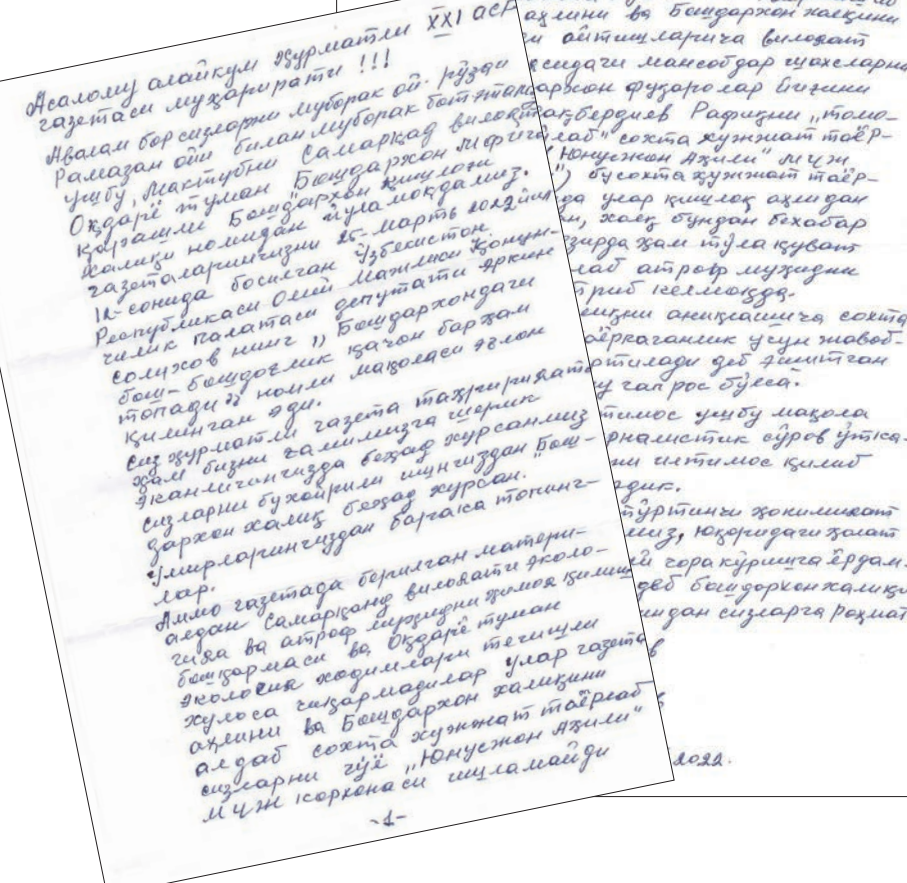 Асалому алайкум Ҳурматли XXI аср
газетаси муҳаририяти !!!
Авалам бор сизларни муборак ой. рўзаи
Рамазан ойи билан муборак бот этам
ушбу, мактубни Самарқад вилоят
Оқдарё туман Бошдархон МФЙга
қарашли Бошдархон қишлоғи
халиқи номидан йўламоқдамиз.
газеталарингизни 25-марть 2022 йил
12-сонида босилган Ўзбекистон
Республикаси Олий Мажлиси Қонун-
чилик палатаси депутати Эркин
Солихов нинг ,, Бошдархондаги
бош-бошдоғлик қачон барҳам
топади" номли мақоласи эълон
қилинган эди.
Сиз ҳурматли газета таҳририяти
ҳам бизни ғамимизга шерик
эканлигингизда беҳад хурсанмиз
сизларни бу хайрили ишингиздан Бош-
дархон халиқ беҳад хурсан."
Умирларингиздан барака топинг-
лар.
Аммо газетада берилган матери-
алдан Самарқанд вилояти эколо-
гия ва атроф муҳидни ҳимоя қилиш
бошқармаси ва Оқдарё туман
экология ходимлари тегишли
хулоса чиқармадилар улар газета
аҳлини ва Бошдархон халиқини
алдаб сохта хужжат таёрлаб
сизларни гўё ,,Юнусжон Аҳили"
МЧЖ корхонаси ишламайди
-1-
аҳлини ва Бошдархон халқини
и айтишларича вилоят
сидаги мансобдар шахсларна
архон фуқаролар йиғини
тақбердиев Рафиқни ,,томо-
лаб" сохта хужжат таёр-
"Юнусжон Аҳили" МЧЖ
) бу сохта ҳужжат таёр-
да улар қишлоқ аҳлидан
и, халқ бундан бехабар
зирда ҳам тўла қуват
лаб атроф муҳидни
триб келмоқда.
иқни аниқлашича сохта
аёрлаганлик учун жавоб-
отилади деб эшитган
у гап рос бўлса.
тимос ушбу мақола
рналистик сўров ўтка-
ни илтимос қилиб
эдик.
тўртинчи ҳокимият
миз, юқоридаги ҳолат
й чора кўришга ёрдам.
деб бошдорхон халиқи
мидан сизларга раҳмат
2022.